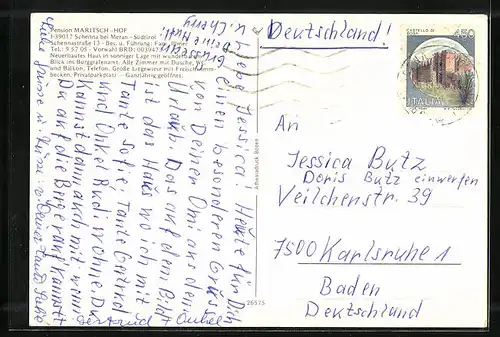 Pension MARITSCH-HOF
I-39017 Schenna bei Meran - Südtirol
Schennastraße 13 - Bes. u. Führung: Fam.
Tel. 5 57 05 - Vorwahl BRD: 0039473
Neuerbautes Haus in sonniger Lage mit
Blick ins Burggrafenamt. Alle Zimmer mit Dusche,
und Balkon, Telefon. Große Liegewiese mit Freischwimm-
becken. Privatparkplatz - Ganzjährig geöffnet.
Liebe Jessica! Heute für Dich
einen besonderen Gruß
von Deiner Omi aus dem
Urlaub. Das auf dem Bild
ist das Haus wo ich mit
Tante Sofie, Tante Gertrud
und Onkel Rudi wohne. Du
kannst dann auch mit wenn
Du auf die Berge rauf kannst
Liebe Grüsse u. Küsse v. Deiner
Gertrud Onkel
26575
Deutschland!
CASTELLO DI
450
ITALIA
An
Jessica Butz
Doris Butz einwerfen
Veilchenstr. 39
7500 Karlsruhe 1
Baden
Deutschland